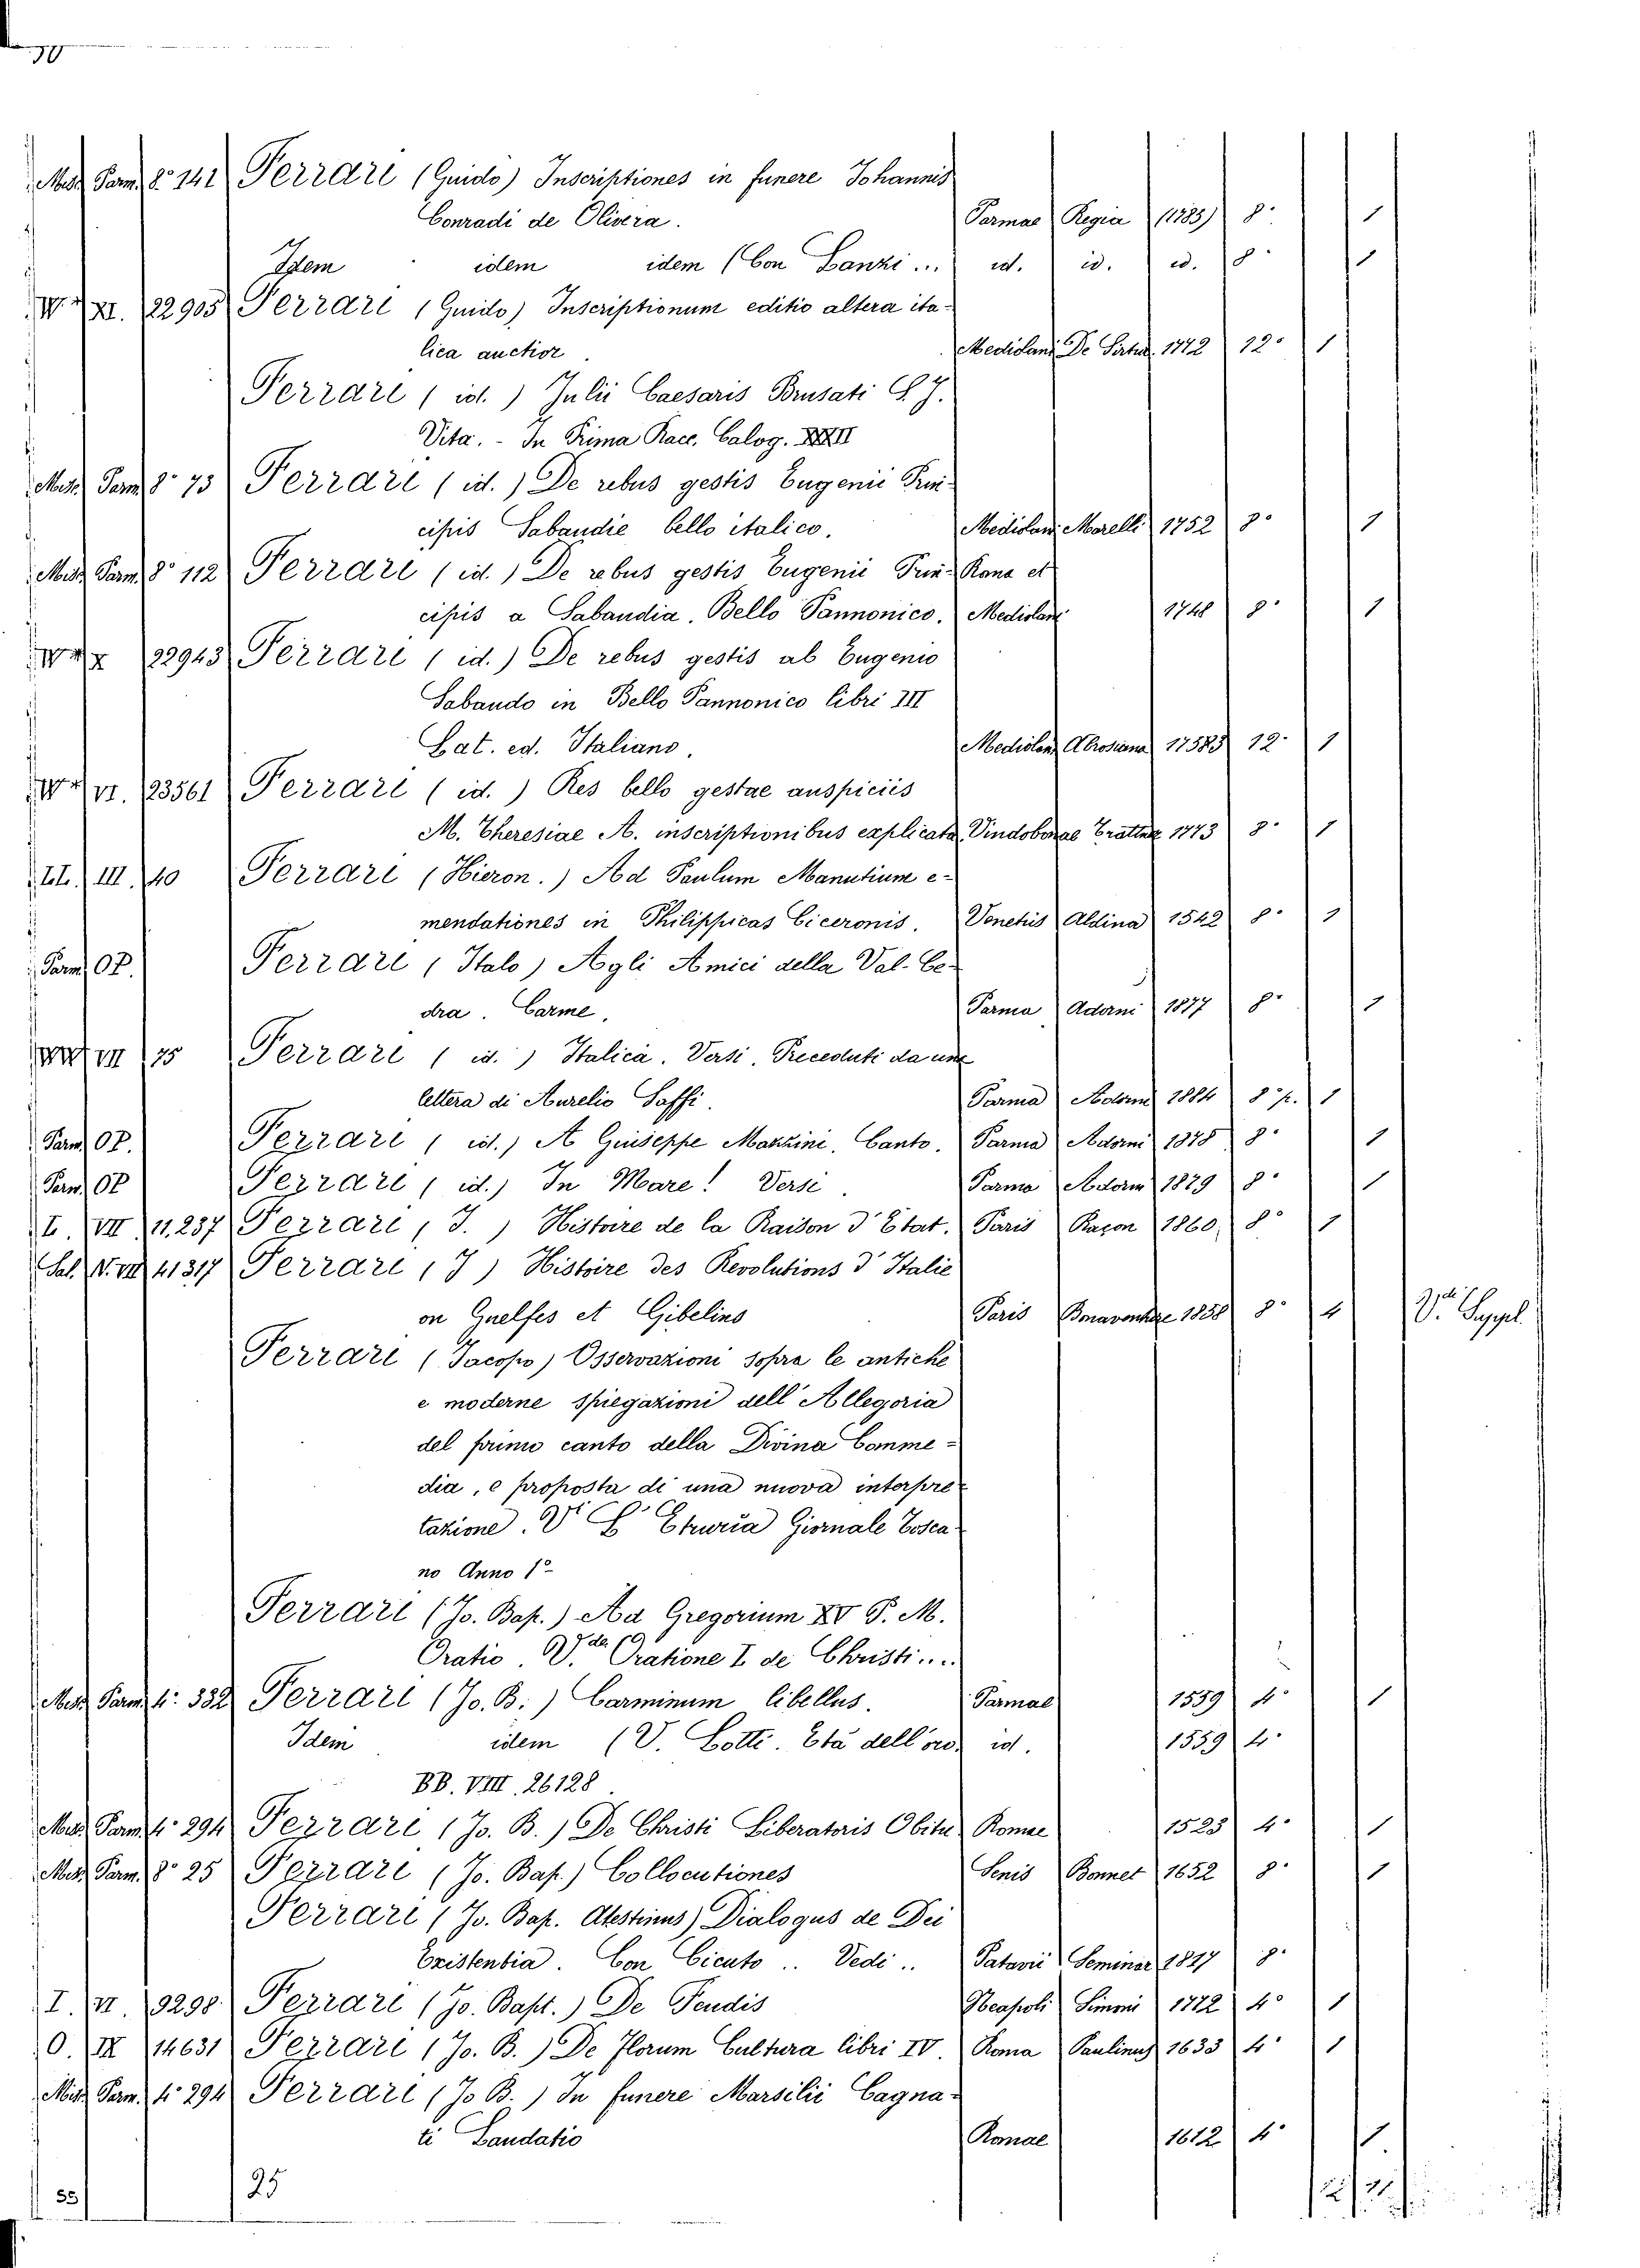 70
Misc. Parm. 8° 141 Ferrari (Guido) Inscriptiones in funere Johannis
Conradi de Olivera. Parmae Regia (1785) 8° 1
Idem idem idem (Con Lanzi ... id. id. id. 8° 1
XI. 22905 Ferrari (Guido) Inscriptionum editio altera ita-
lica auctior. Mediolani De Sertis 1772 12° 1
Ferrari (id.) Julii Caesaris Brusati S. J.
Vita. - In Prima Racc. Calog. XXXII
Misc. Parm. 8° 73 Ferrari (id.) De rebus gestis Eugenii Prin-
cipis Sabaudie bello italico. Mediolani Marelli 1752 8° 1
Misc. Parm. 8° 112 Ferrari (id.) De rebus gestis Eugenii Prin- Rona et
cipis a Sabaudia. Bello Pannonico. Mediolani 1748 8° 1
22943 Ferrari (id.) De rebus gestis ab Eugenio
Sabaudo in Bello Pannonico libri III
Lat. ed. Italiano. Mediolani 1758 12° 1
VI. 23561 Ferrari (id.) Res bello gestae auspiciis
M. Theresiae A. inscriptionibus explicata. Vindobonae Trattner 1773 8° 1
LL. III. 40 Ferrari (Hieron.) Ad Paulum Manutium e-
mendationes in Philippicas Ciceronis. Venetiis Aldina 1542 8° 1
Parm. OP. Ferrari (Italo) Agli Amici della Val-Ce-
dra. Carme. Parma Adorni 1877 8° 1
VII 75 Ferrari (id.) Italica. Versi. Preceduti da una
lettera di Aurelio Saffi. Parma Adorni 1884 8° p. 1
Parm. OP. Ferrari (id.) A Giuseppe Mazzini. Canto. Parma Adorni 1878 8° 1
Parm. OP Ferrari (id.) In Mare! Versi. Parma Adorni 1879 8° 1
I. VII 11.237 Ferrari (J.) Histoire de la Raison d'Etat. Paris Raçon 1860 8° 1
Sal. V. VII 41317 Ferrari (J) Histoire des Revolutions d'Italie
on Guelfes et Gibelins Paris Bonaventure 1858 8° 4 V.de Suppl.
Ferrari (Jacopo) Osservazioni sopra le antiche
e moderne spiegazioni dell'Allegoria
del primo canto della Divina Comme=
dia, e proposta di una nuova interpre-
tazione. Vi L'Etruria Giornale Tosca-
no Anno 1°
Ferrari (Jo. Bap.) Ad Gregorium XV P. M.
Oratio. V.de Oratione I de Christi...
Misc. Parm. 4° 332 Ferrari (Jo. B.) Carminum libellus. Parmae 1559 4° 1
Idem idem (V. Lotti. Età dell'oro, id. 1559 4°
BB. VIII. 26128
Misc. Parm. 4° 294 Ferrari (Jo. B.) De Christi Liberatoris Obitu Romae 1523 4° 1
Misc. Parm. 8° 25 Ferrari (Jo. Bap.) Collocutiones Senis Bonnet 1652 8° 1
Ferrari (Jo. Bap. Atestinus) Dialogus de Dei
Existentia. Con Cicuto .. Vedi .. Patavii Seminar 1847 8°
I. VI. 9298 Ferrari (Jo. Bapt.) De Feudis Neapoli Simoni 1772 4° 1
O. IX 14631 Ferrari (Jo. B.) De Florum Cultura libri IV. Roma Paulinus 1633 4° 1
Misc. Parm. 4° 294 Ferrari (Jo B.) In funere Marsilii Cagna-
ti Laudatio Romae 1612 4° 1
55 25